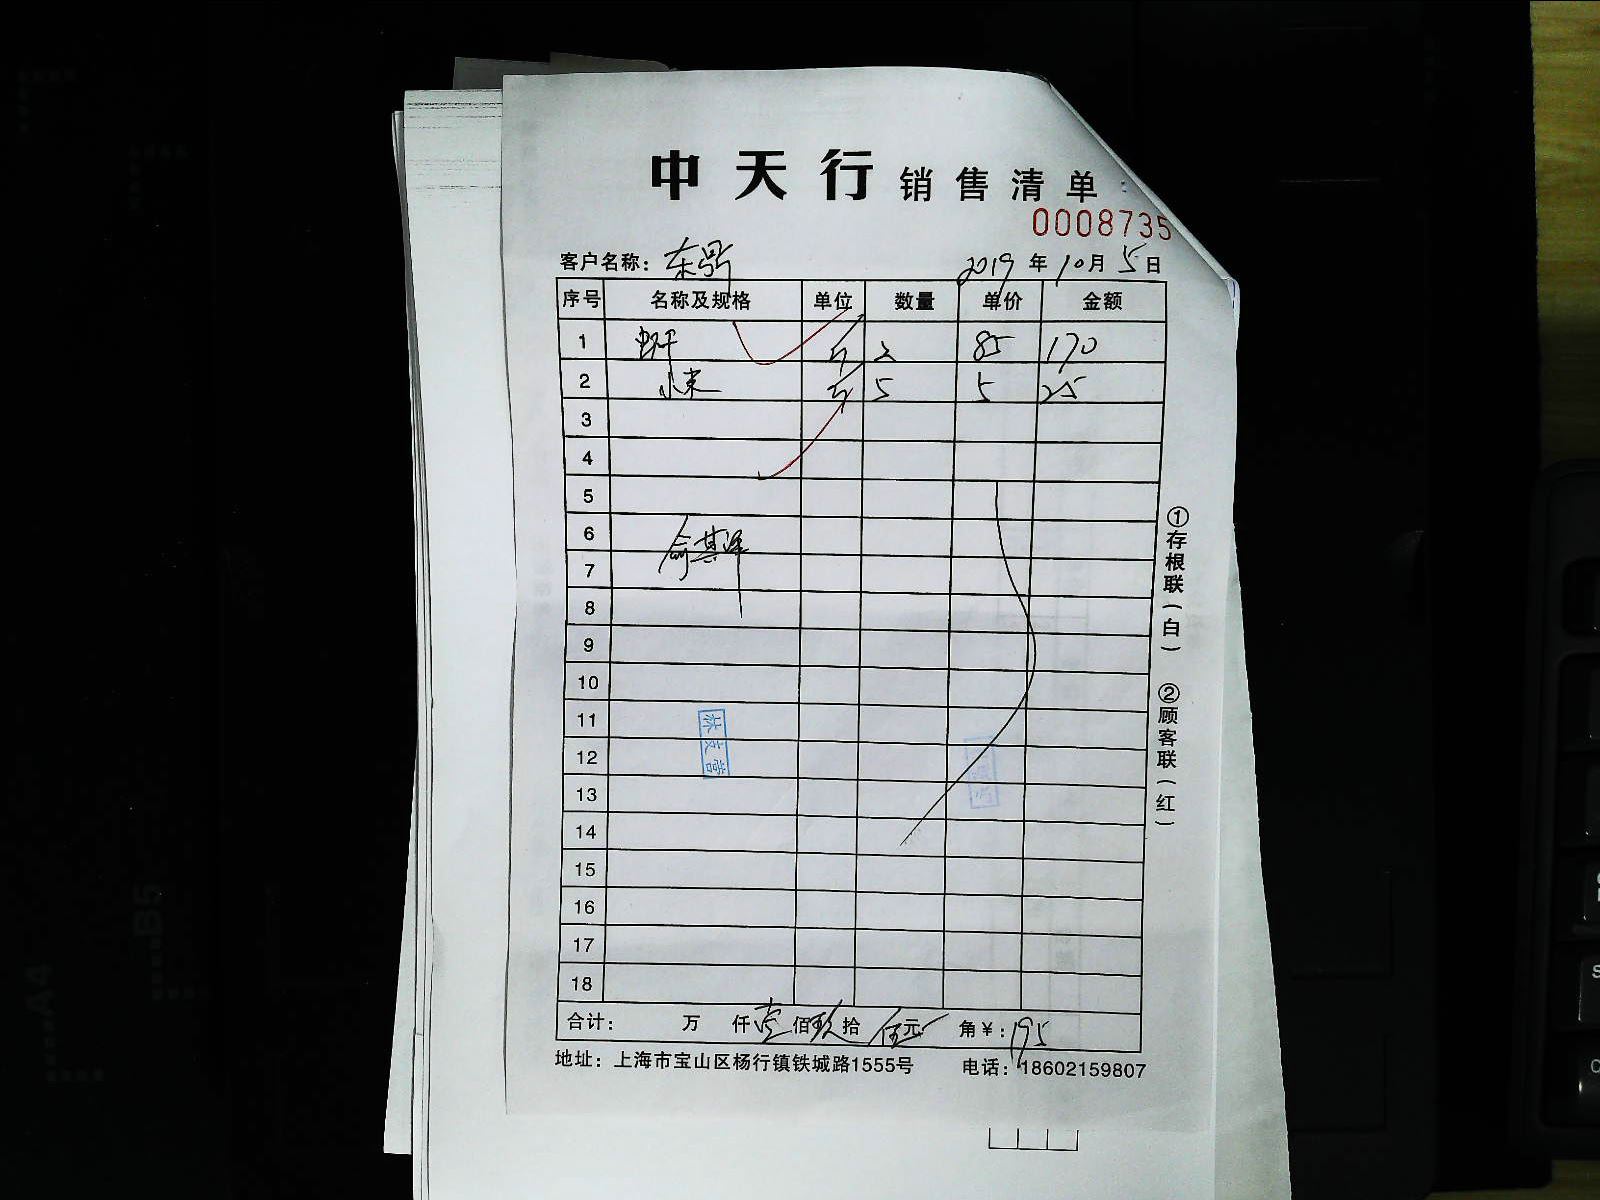 中天行 销售清单
0008735
客户名称：东鼎 2019年10月5日
序号 名称及规格 单位 数量 单价 金额
1 虾干 斤 2 85 170
2 小米 斤 5 5 25
3
4
5
6
7
8
9
10
11
12
13
14
15
16
17
18
合计： 万 仟壹佰玖拾伍元 角¥：195
地址：上海市宝山区杨行镇铁城路1555号 电话：18602159807
①存根联（白） ②顾客联（红）
B5
A4